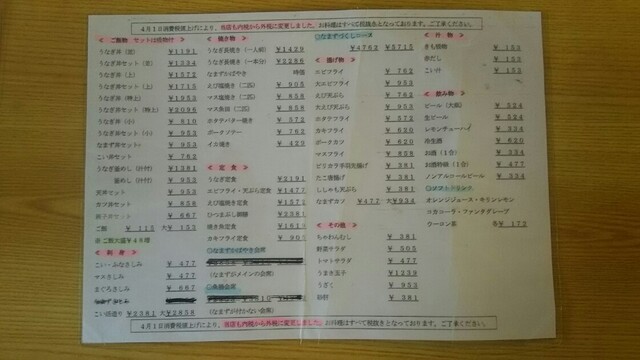 ４月１日消費税値上げにより、当店も内税から外税に変更しました。お料理はすべて税抜きとなっております。ご了承ください。
＜ ご飯物 セットは汁物付＞
うなぎ丼（並） ￥1191
うなぎ丼セット（並） ￥1334
うなぎ丼（上） ￥1572
うなぎ丼セット（上） ￥1715
うなぎ丼（特上） ￥1953
うなぎ丼セット（特上） ￥2096
うなぎ丼（小） ￥810
うなぎ丼セット（小） ￥953
なまず丼セット ￥953
こい丼セット ￥762
うなぎ釜めし（汁付） ￥1381
釜めし（汁付） ￥953
天丼セット ￥953
カツ丼セット ￥836
親子丼セット ￥667
ご飯 ￥115 大￥153
＜ 刺 身 ＞
こい・みなさしみ ￥477
マスさしみ ￥477
まぐろさしみ ￥667
こい活造り ￥2381 大￥2858
＜ 焼き物 ＞
うなぎ長焼き（一人前） ￥1429
うなぎ長焼き（一本分） ￥2286
なまずかばやき 時価
えび塩焼き（二匹） ￥905
マス塩焼き（二匹） ￥858
マス魚田（二匹） ￥858
ホタテバター焼き ￥572
ポークソテー ￥762
イカ焼き ￥429
＜ 定 食 ＞
うなぎ定食 ￥2191
エビフライ・天ぷら定食 ￥1477
えび塩焼き定食 ￥1572
ひつまぶし御膳 ￥2381
焼き魚定食 ￥1619
カキフライ定食 ￥905
◎なまずかばやき会席
（なまずがメインの会席）
（なまずが付かない会席）
◎なまずづくしコース
￥4762 ￥5715
＜ 揚げ物 ＞
エビフライ ￥762
大エビフライ ￥953
えび天ぷら ￥762
大えび天ぷら ￥953
ホタテフライ ￥572
カキフライ ￥620
ポークカツ ￥620
マスフライ ￥858
ピリカラ手羽先揚げ ￥381
たこ唐揚げ ￥381
ししゃも天ぷら ￥381
なまずカツ ￥472 大￥934
＜ その他 ＞
ちゃわんむし ￥381
野菜サラダ ￥505
トマトサラダ ￥477
うまき玉子 ￥1239
うざく ￥953
￥381
＜ 汁 物 ＞
きも吸物 ￥153
赤だし ￥153
こい汁 ￥153
＜ 飲み物 ＞
ビール（大瓶） ￥524
生ビール ￥524
レモンチューハイ ￥334
冷生酒 ￥620
お酒（１合） ￥334
お酒特級（１合） ￥477
ノンアルコールビール ￥334
◎ソフトドリンク
オレンジジュース・キリンレモン
コカコーラ・ファンタグレープ
ウーロン茶 各￥173
４月１日消費税値上げにより、当店も内税から外税に変更しました。お料理はすべて税抜きとなっております。ご了承ください。